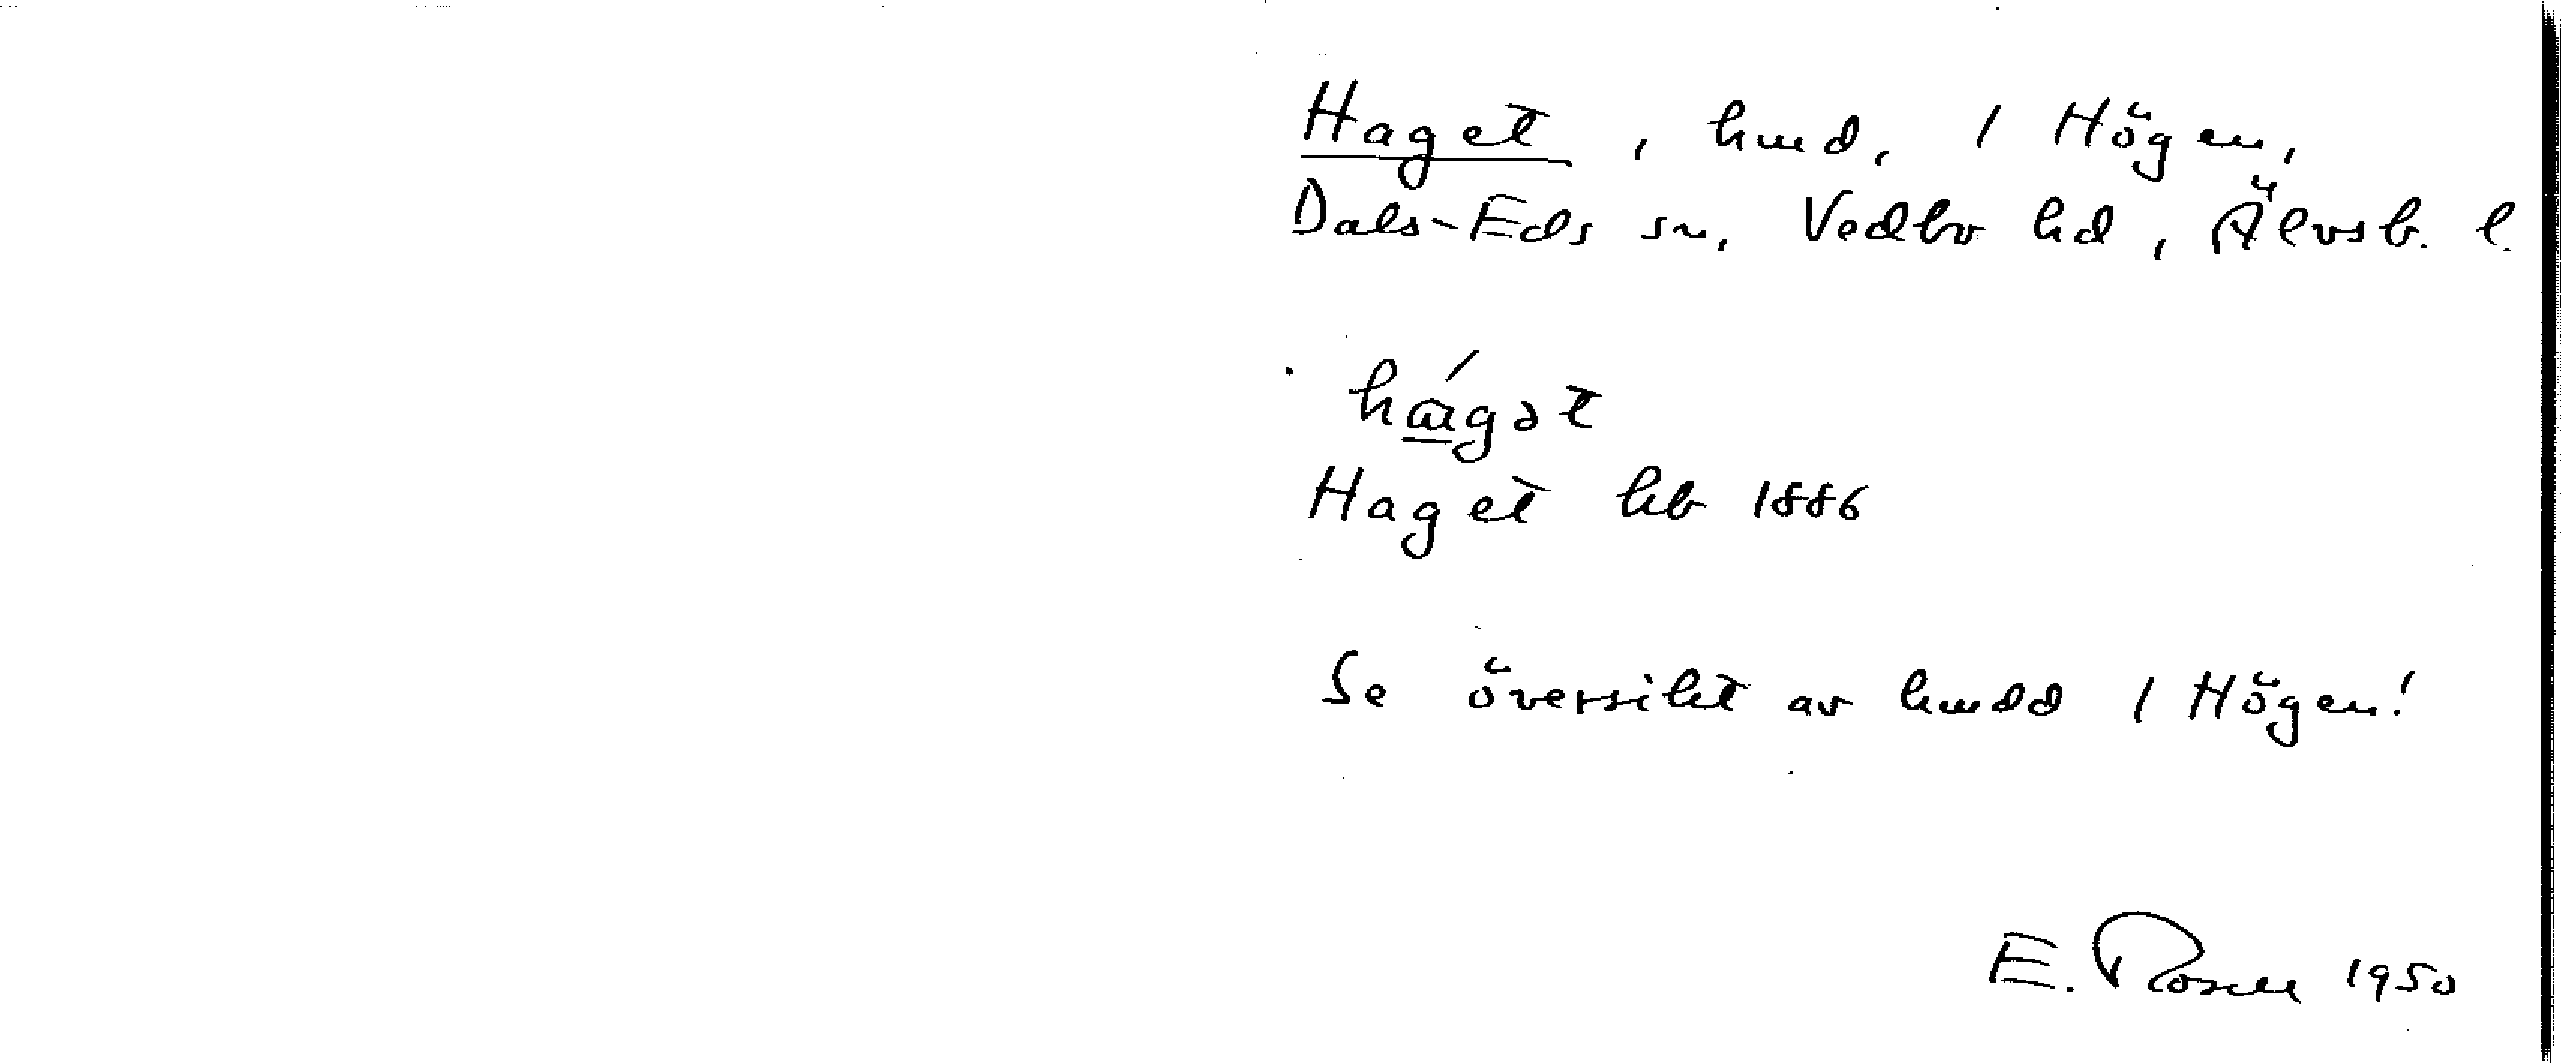 Haget, hmd, 1 Högen,
Dals-Eds sn, Vedbo hd, Älvsb. l.
hágət
Haget hb 1886
Se översikt av hmdd 1 Högen!
E. Rosell 1950